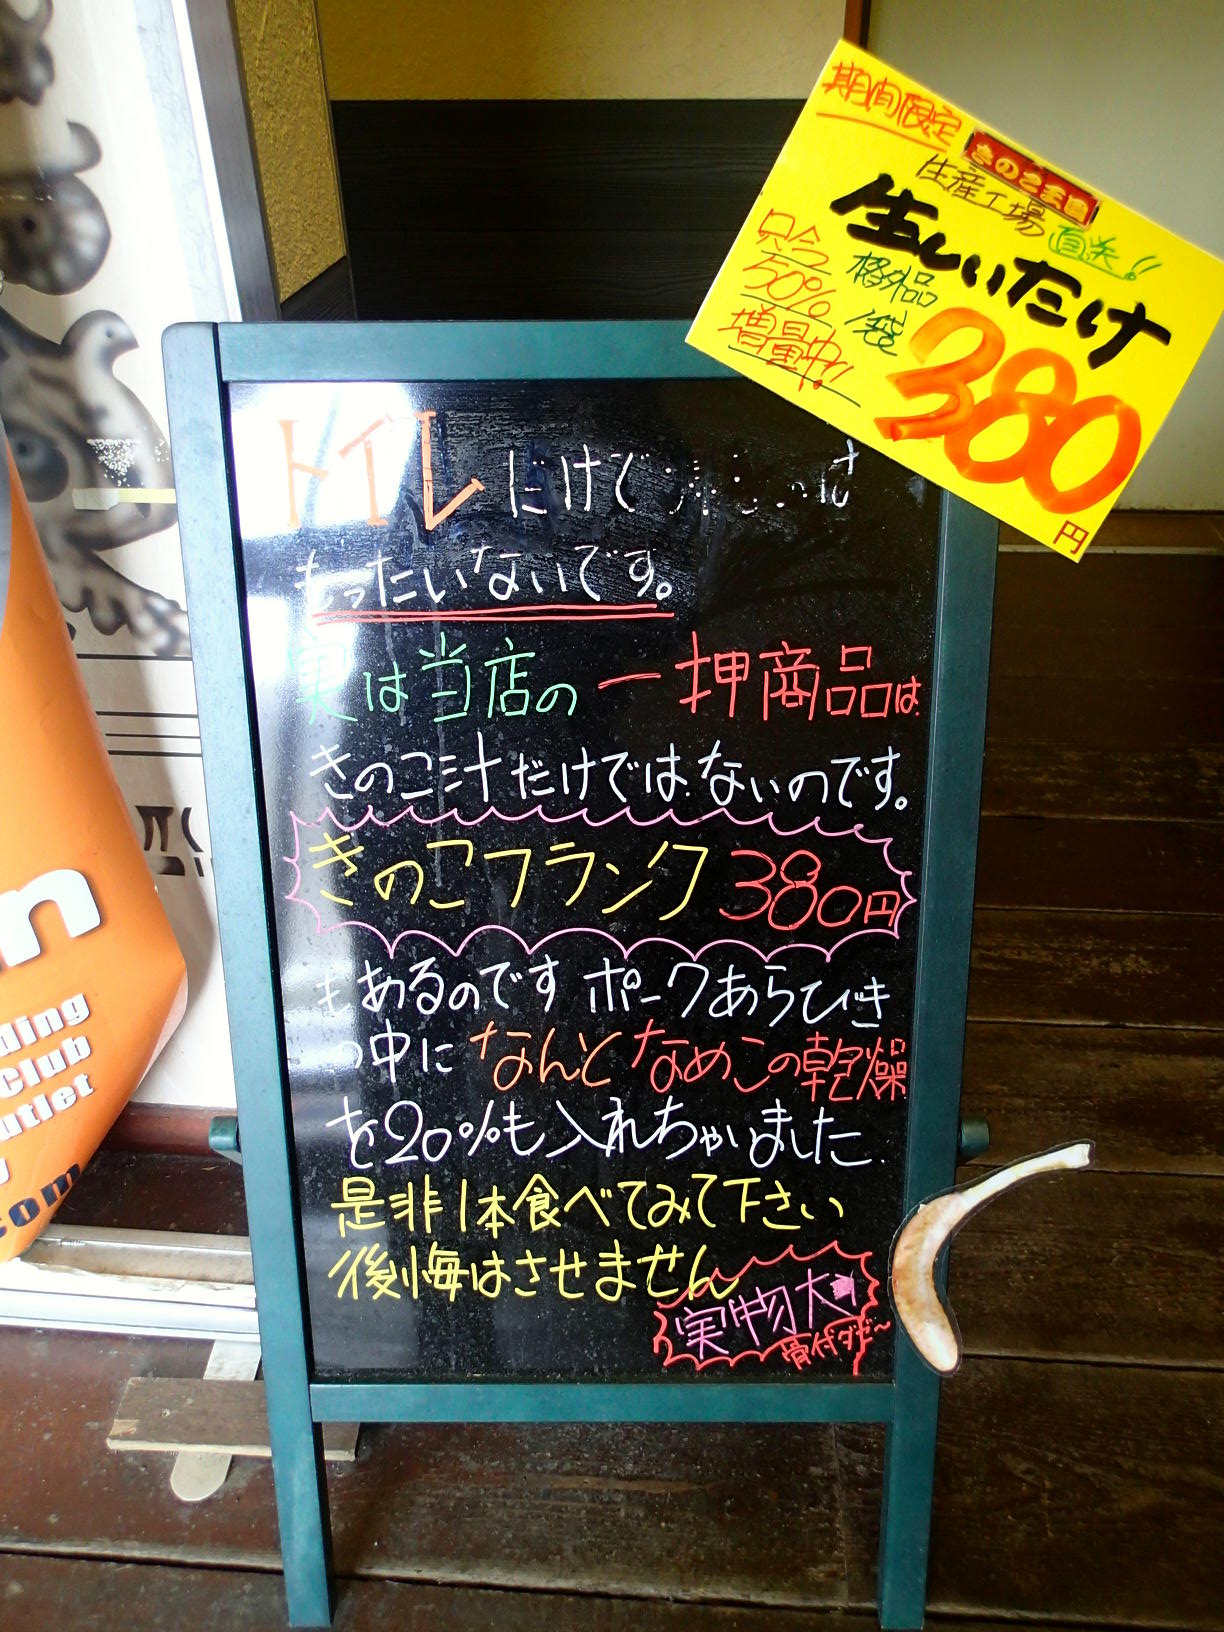 期間限定
きのこ王国
生産工場直送!!
生しいたけ
格外品
1袋
380
円
只今
50%
増量中!!
トイレだけで
もったいないです。
実は当店の一押商品は
きのこ汁だけではないのです。
きのこフランク 380円
もあるのです ポークあらびき
の中に なんとなめこの乾燥
を20%も入れちゃいました
是非1本食べてみて下さい
後悔はさせません
実物大
n
ding
Club
utlet
com